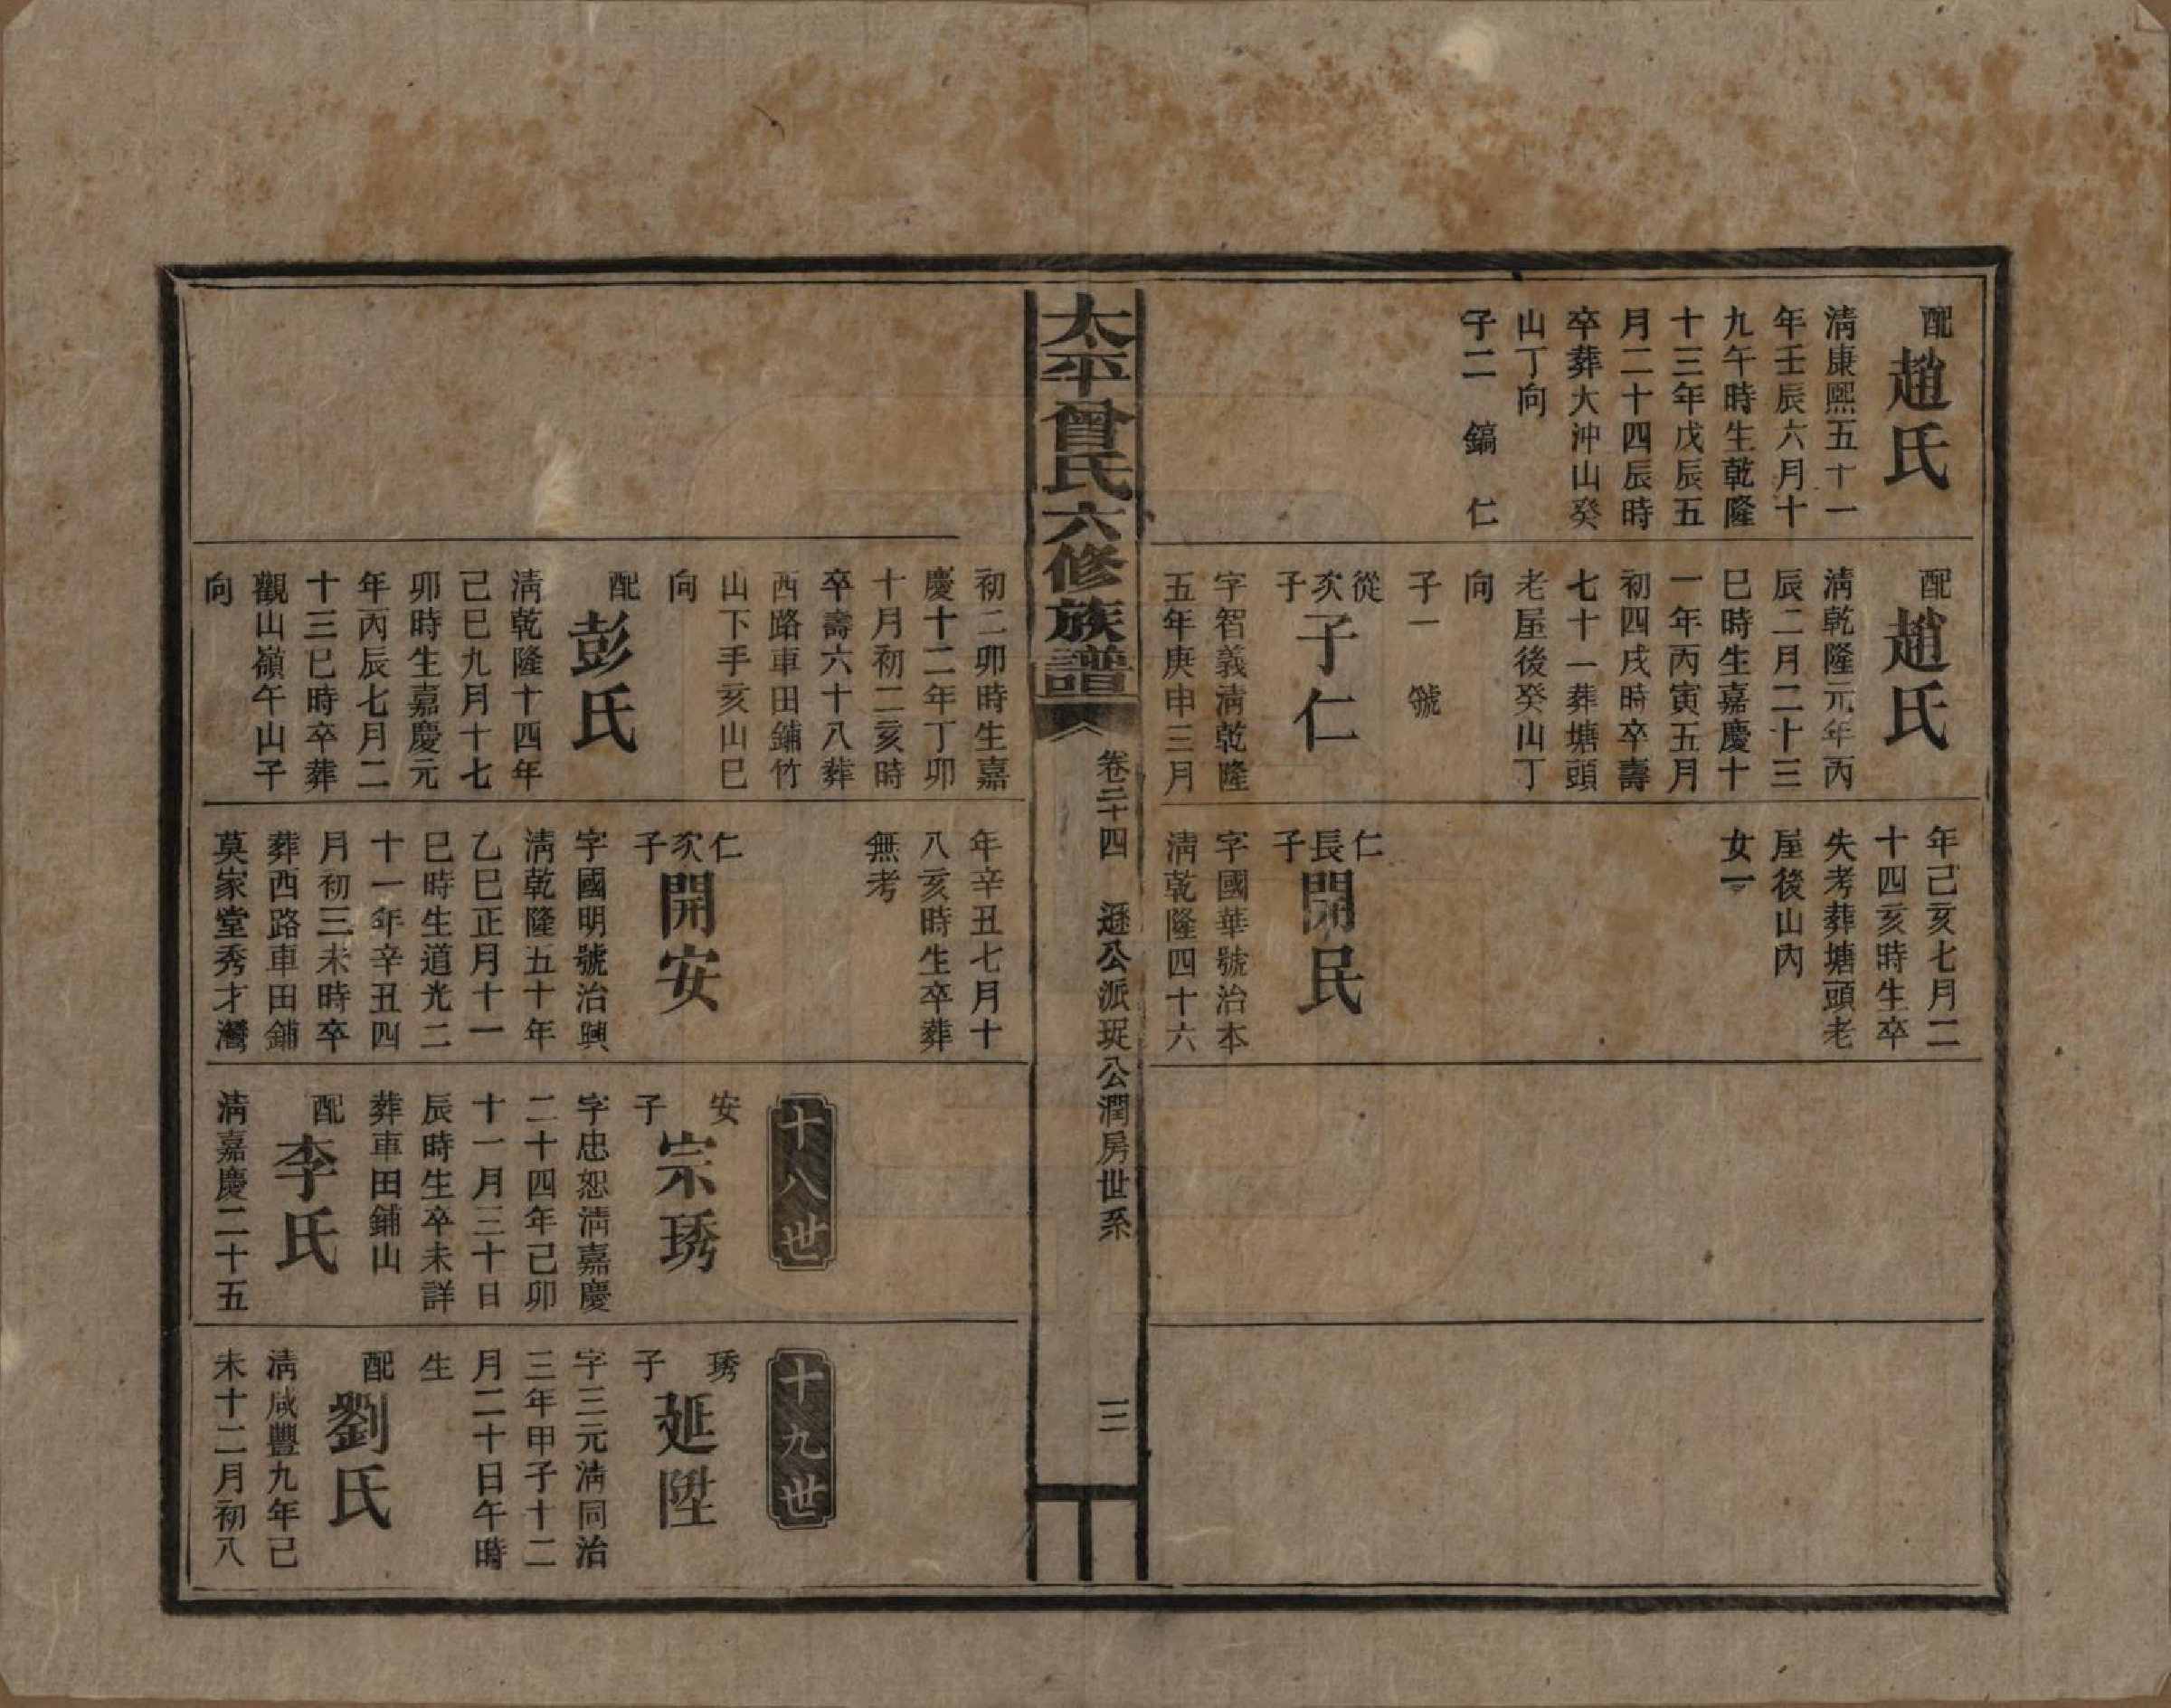 配
趙氏
清康熙五十一
年壬辰六月十
九午時生乾隆
十三年戊辰五
月二十四辰時
卒葬大沖山癸
山丁向
子二　鎬　仁
配
趙氏
淸乾隆元年丙
辰二月二十三
巳時生嘉慶十
一年丙寅五月
初四戌時卒壽
七十一葬塘頭
老屋後癸山丁
向
子一　號
從次子
子仁
字智義淸乾隆
五年庚申三月
年己亥七月二
十四亥時生卒
失考葬塘頭老
屋後山內
女一
仁長子
開民
字國華號治本
淸乾隆四十六
太平曾氏六修族譜
卷二十四　遜公派珽公潤房世系
三
初二卯時生嘉
慶十二年丁卯
十月初二亥時
卒壽六十八葬
西路車田鋪竹
山下手亥山巳
向
配
彭氏
淸乾隆十四年
己巳九月十七
卯時生嘉慶元
年丙辰七月二
十三巳時卒葬
觀山嶺午山子
向
年辛丑七月十
八亥時生卒葬
無考
仁次子
開安
字國明號治興
淸乾隆五十年
乙巳正月十一
巳時生道光二
十一年辛丑四
月初三未時卒
葬西路車田鋪
莫家堂秀才灣
十八世
安子
宗琇
字忠恕淸嘉慶
二十四年己卯
十一月三十日
辰時生卒未詳
葬車田鋪山
配
李氏
淸嘉慶二十五
十九世
琇子
延陞
字三元淸同治
三年甲子十二
月二十日午時
生
配
劉氏
淸咸豐九年己
未十二月初八